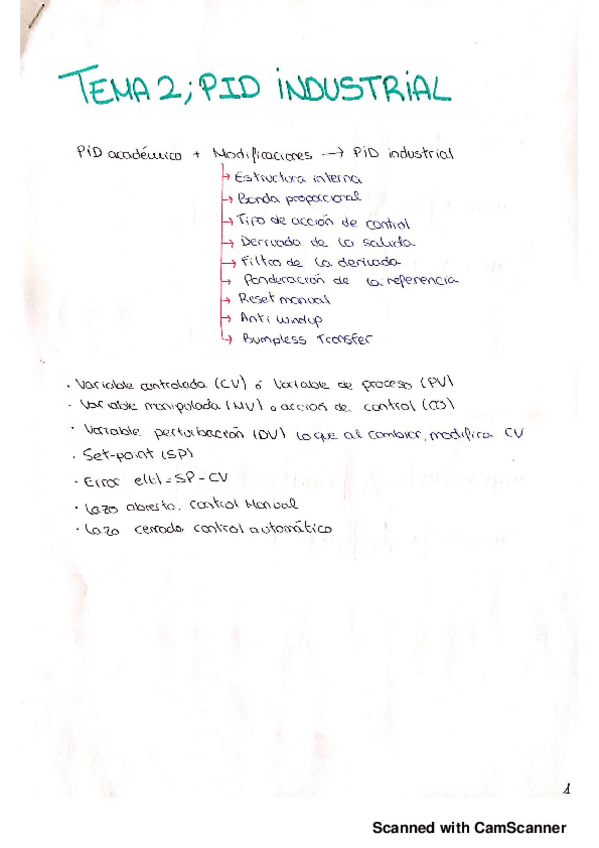 TEMA 2; PID INDUSTRIAL
PID académico + Modificaciones → PID industrial
→ Estructura interna
→ Banda proporcional
→ Tipo de acción de control
→ Derivada de la salida
→ Filtro de la derivada
→ Ponderación de la referencia
→ Reset manual
→ Anti windup
→ Bumpless Transfer
· Variable controlada (CV) ó Variable de proceso (PV)
· Variable manipulada (MV) o acción de control (CO)
· Variable perturbación (DV) lo que al cambiar, modifica CV
· Set-point (SP)
· Error e(t) = SP - CV
· Lazo abierto. Control Manual
· Lazo cerrado control automático
1
Scanned with CamScanner